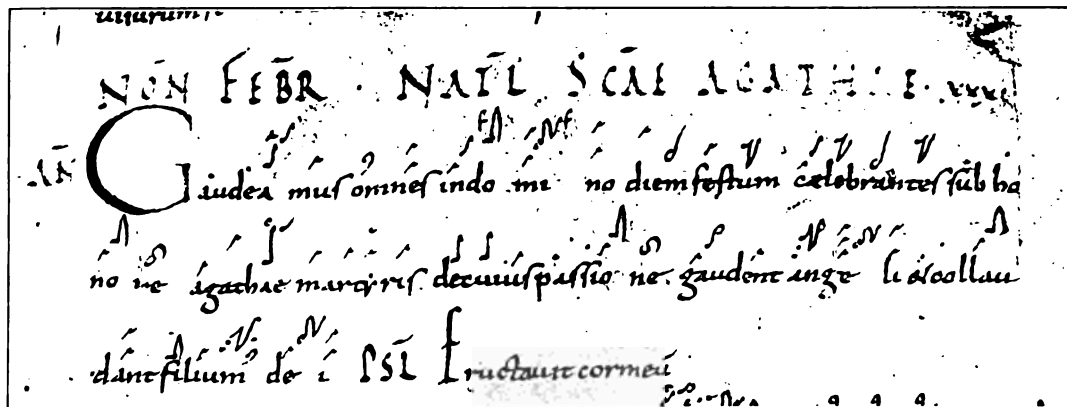 NON̄ FEBR̄ · NAT̄L SCĀE AGATHAE ·
AN̄ Gaudeamus omnes in domino diem festum celebrantes sub ho
nore agathae martyris. de cuius passione. gaudent angeli & collau
dant filium dei PSL̄ Eructauit cor meū